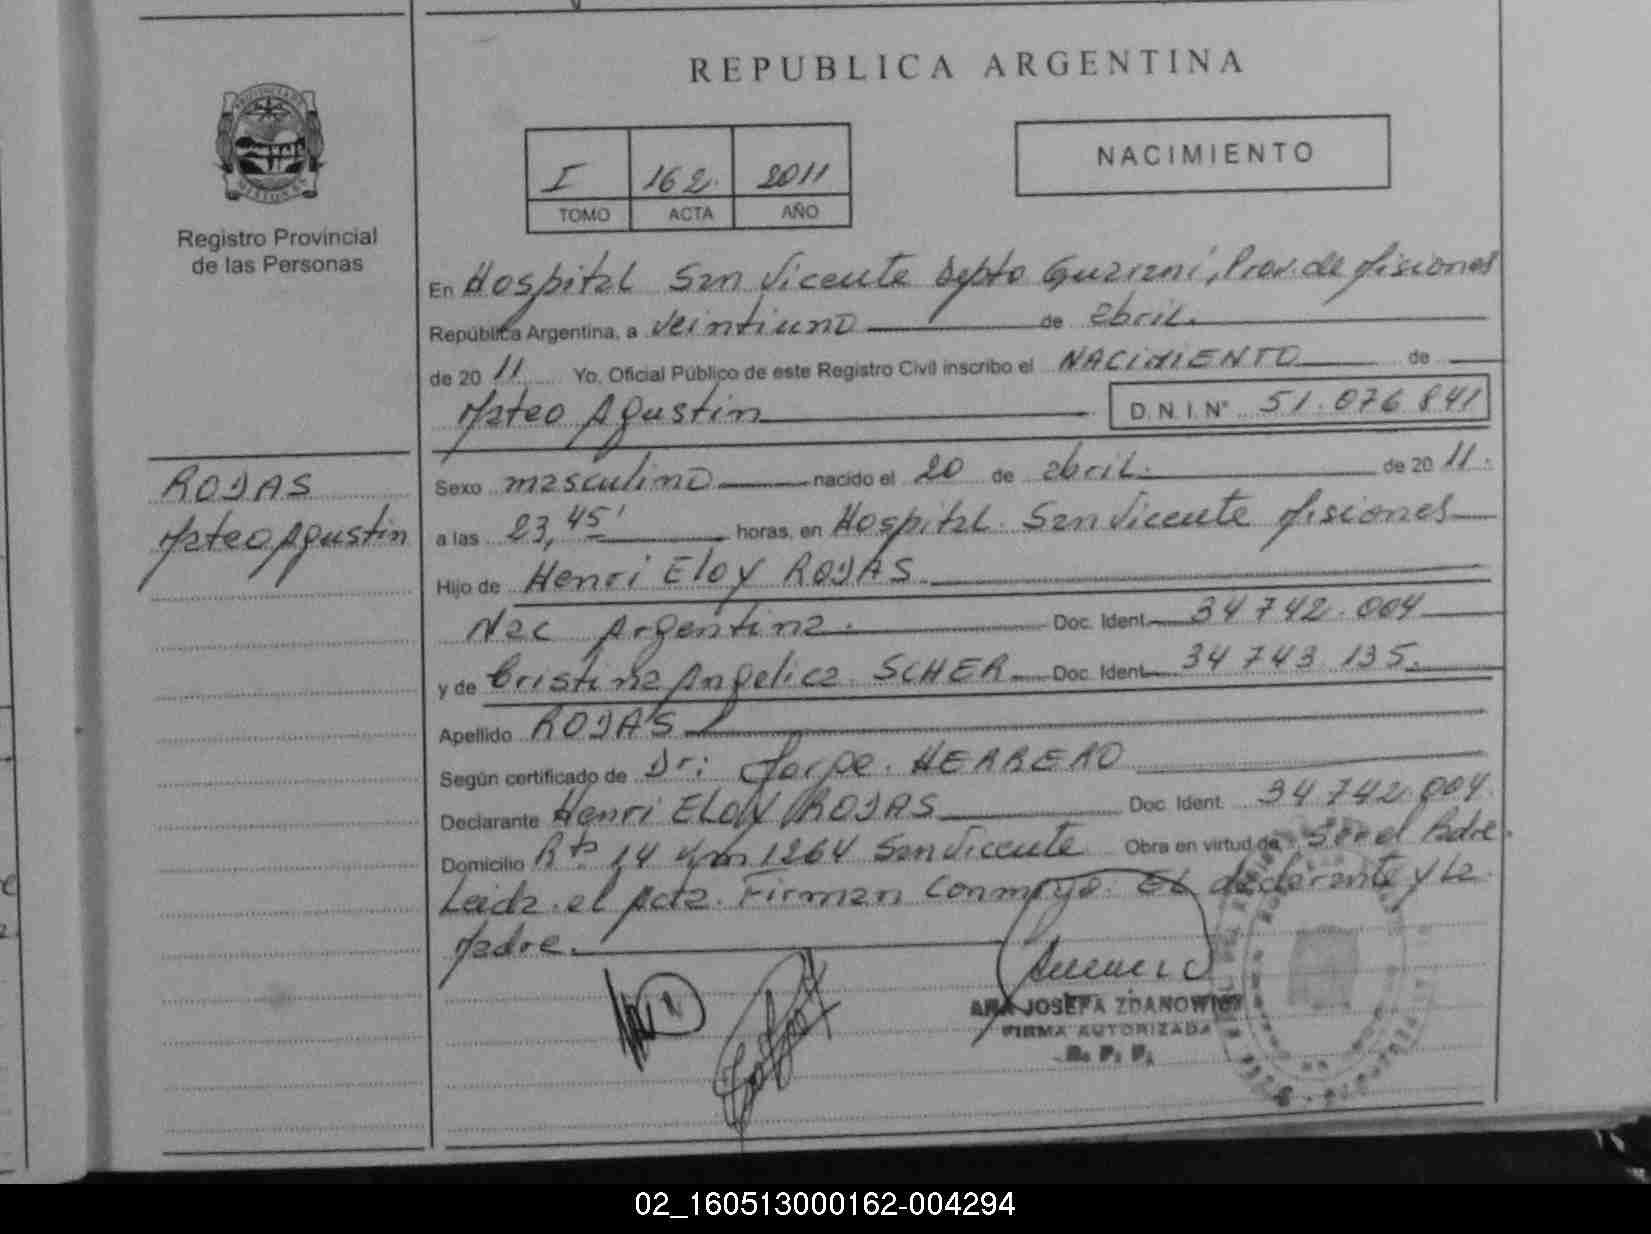 REPUBLICA ARGENTINA
PROVINCIA DE
MISIONES
Registro Provincial
de las Personas
I 162 2011
TOMO ACTA AÑO
NACIMIENTO
En Hospital San Vicente Depto Guarani, Prov. de Misiones
República Argentina, a veintiuno de abril.
de 20 11 Yo, Oficial Público de este Registro Civil inscribo el NACIMIENTO de
Mateo Agustin D.N.I. N° 51.076 841
ROJAS
Mateo Agustin
Sexo masculino nacido el 20 de abril. de 20 11.
a las 23,45' horas, en Hospital San Vicente Misiones
Hijo de Henri Eloy ROJAS
Nac Argentina. Doc. Ident. 34 742.004
y de Cristina Angelica SCHER Doc. Ident. 34 743 135.
Apellido ROJAS
Según certificado de Dr: Jorge HERRERO
Declarante Henri ELOY ROJAS Doc. Ident. 34 742.004
Domicilio Rta 14 Km 1264 San Vicente Obra en virtud de Ser el Padre.
Leida el Acta. Firman Conmigo. EL declarante y La
Madre.
ANA JOSEFA ZDANOWICZ
FIRMA AUTORIZADA
R. P. P.
02_160513000162-004294